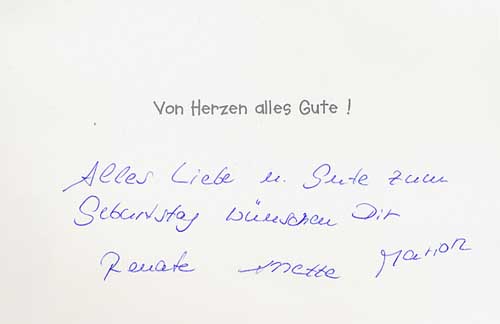 Von Herzen alles Gute !
Alles Liebe u. Gute zum
Geburtstag wünschen Dir
Renate Anette Marion